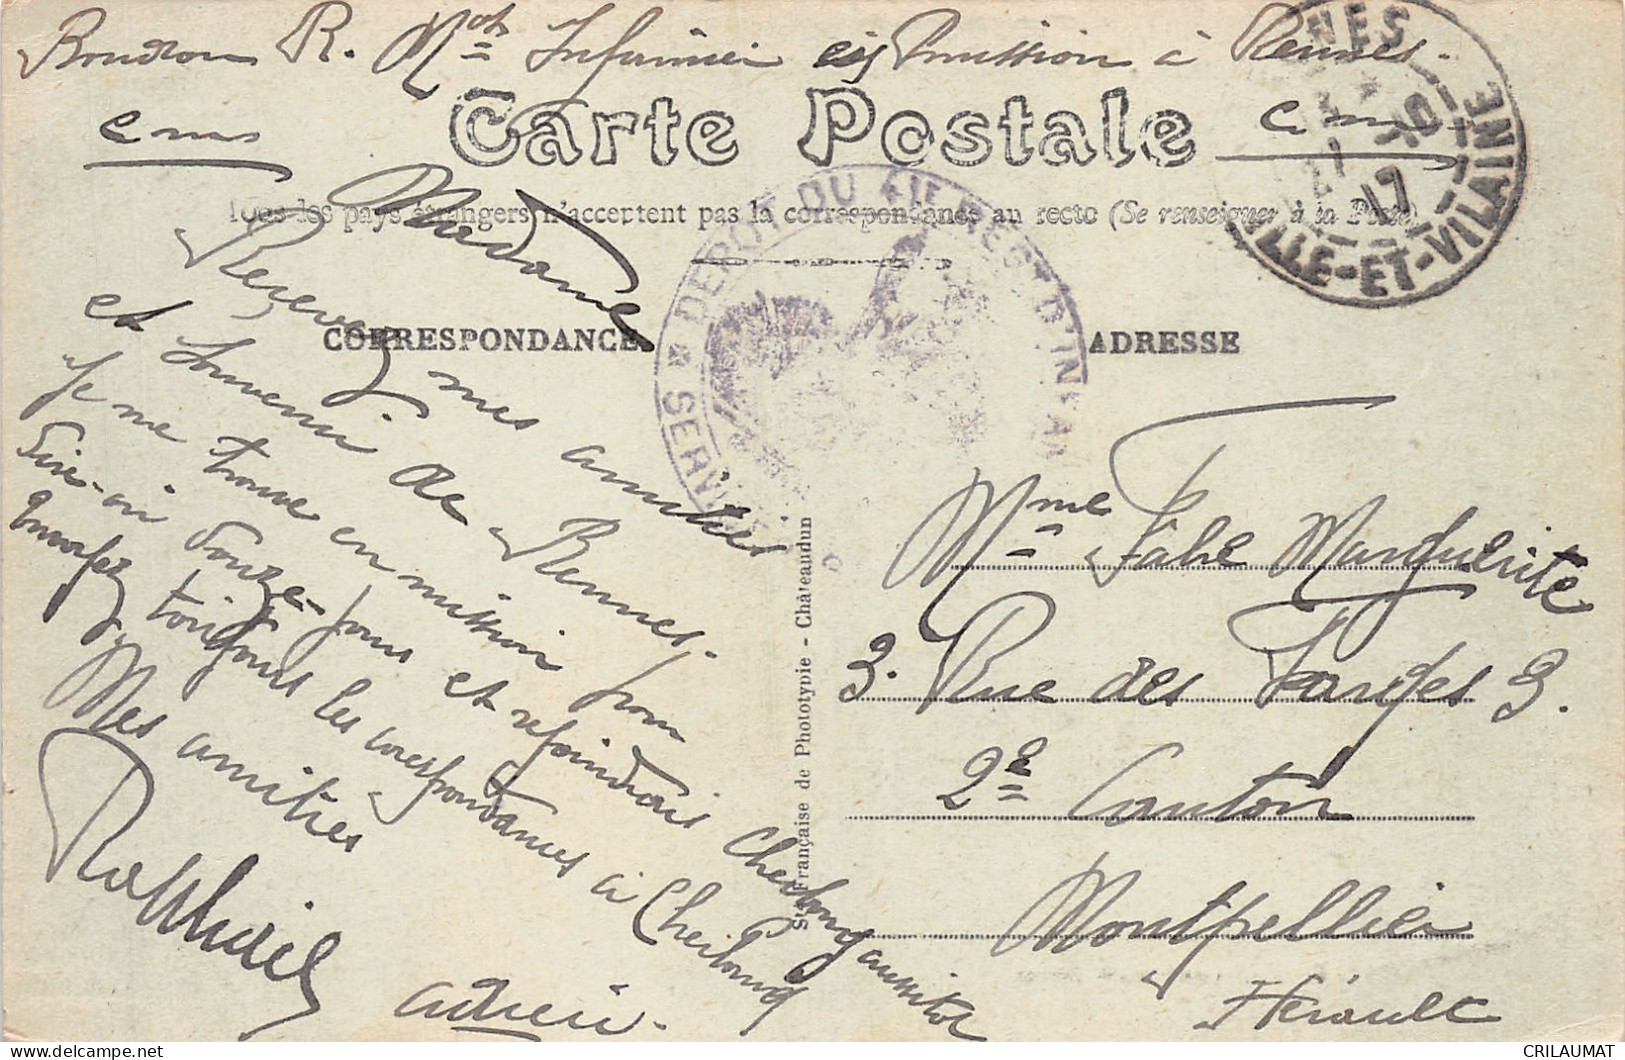 Boudrou R. Mot Infirmier en mission à Rennes.
Carte Postale
Tous les pays étrangers n'acceptent pas la correspondance au recto (Se renseigner à la Poste)
NES
10
17
ILLE-ET-VILAINE
DEPOT DU 41E REGT D'INFAN
SERVI
CORRESPONDANCE
ADRESSE
Madame
Recevez mes amitiés
et souvenir de Rennes.
Je me trouve en mission pour
dix-ou douze-jours et rejoindrais Cherbourg aussitot
Envoyez toujours les correspondances à Cherbourg
Mes amitiés
Raphael
adieu.
Mme Fabre Marguerite
3. Rue des Farges 3.
2e Canton
Montpellier
Hérault
Sté Française de Phototypie - Châteaudun
CRILAUMAT
delcampe.net